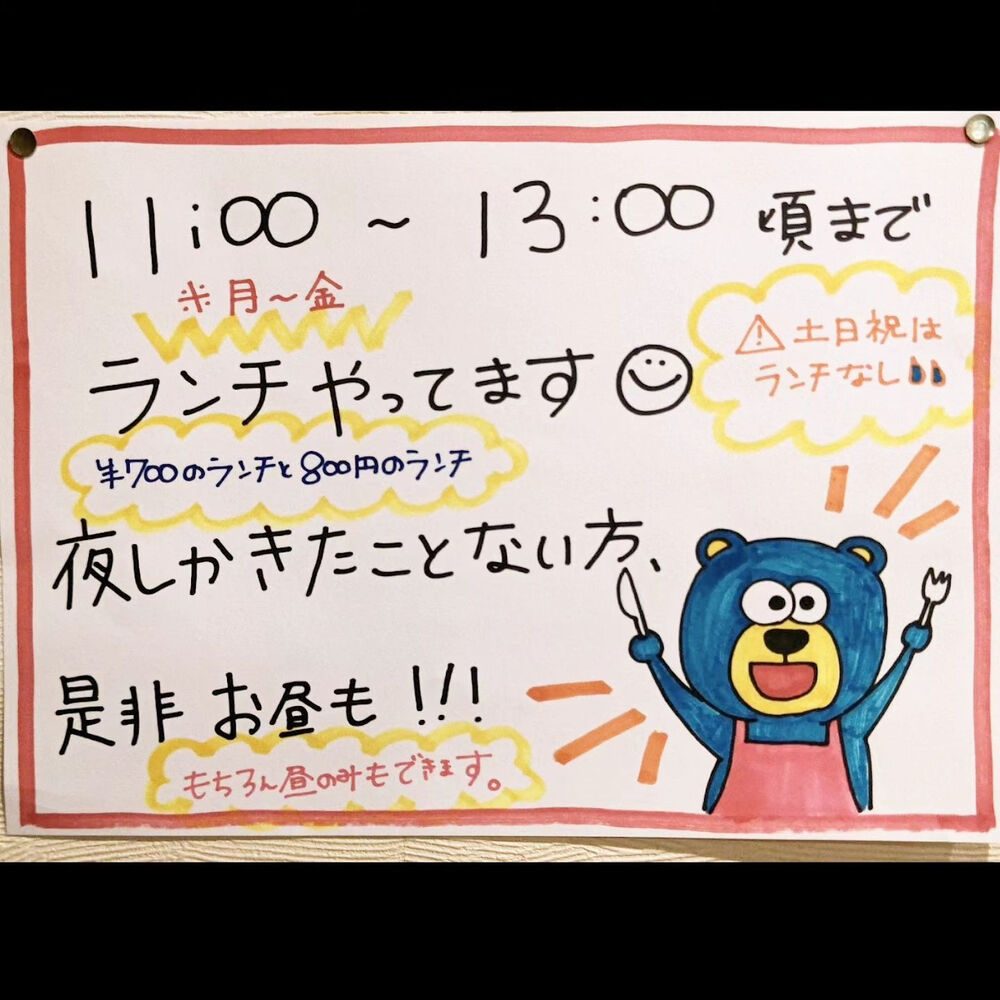 11:00 ~ 13:00 頃まで
※月~金
ランチやってます
⚠土日祝は
ランチなし
¥700のランチと800円のランチ
夜しかきたことない方、
是非 お昼も!!!
もちろん昼のみもできます。